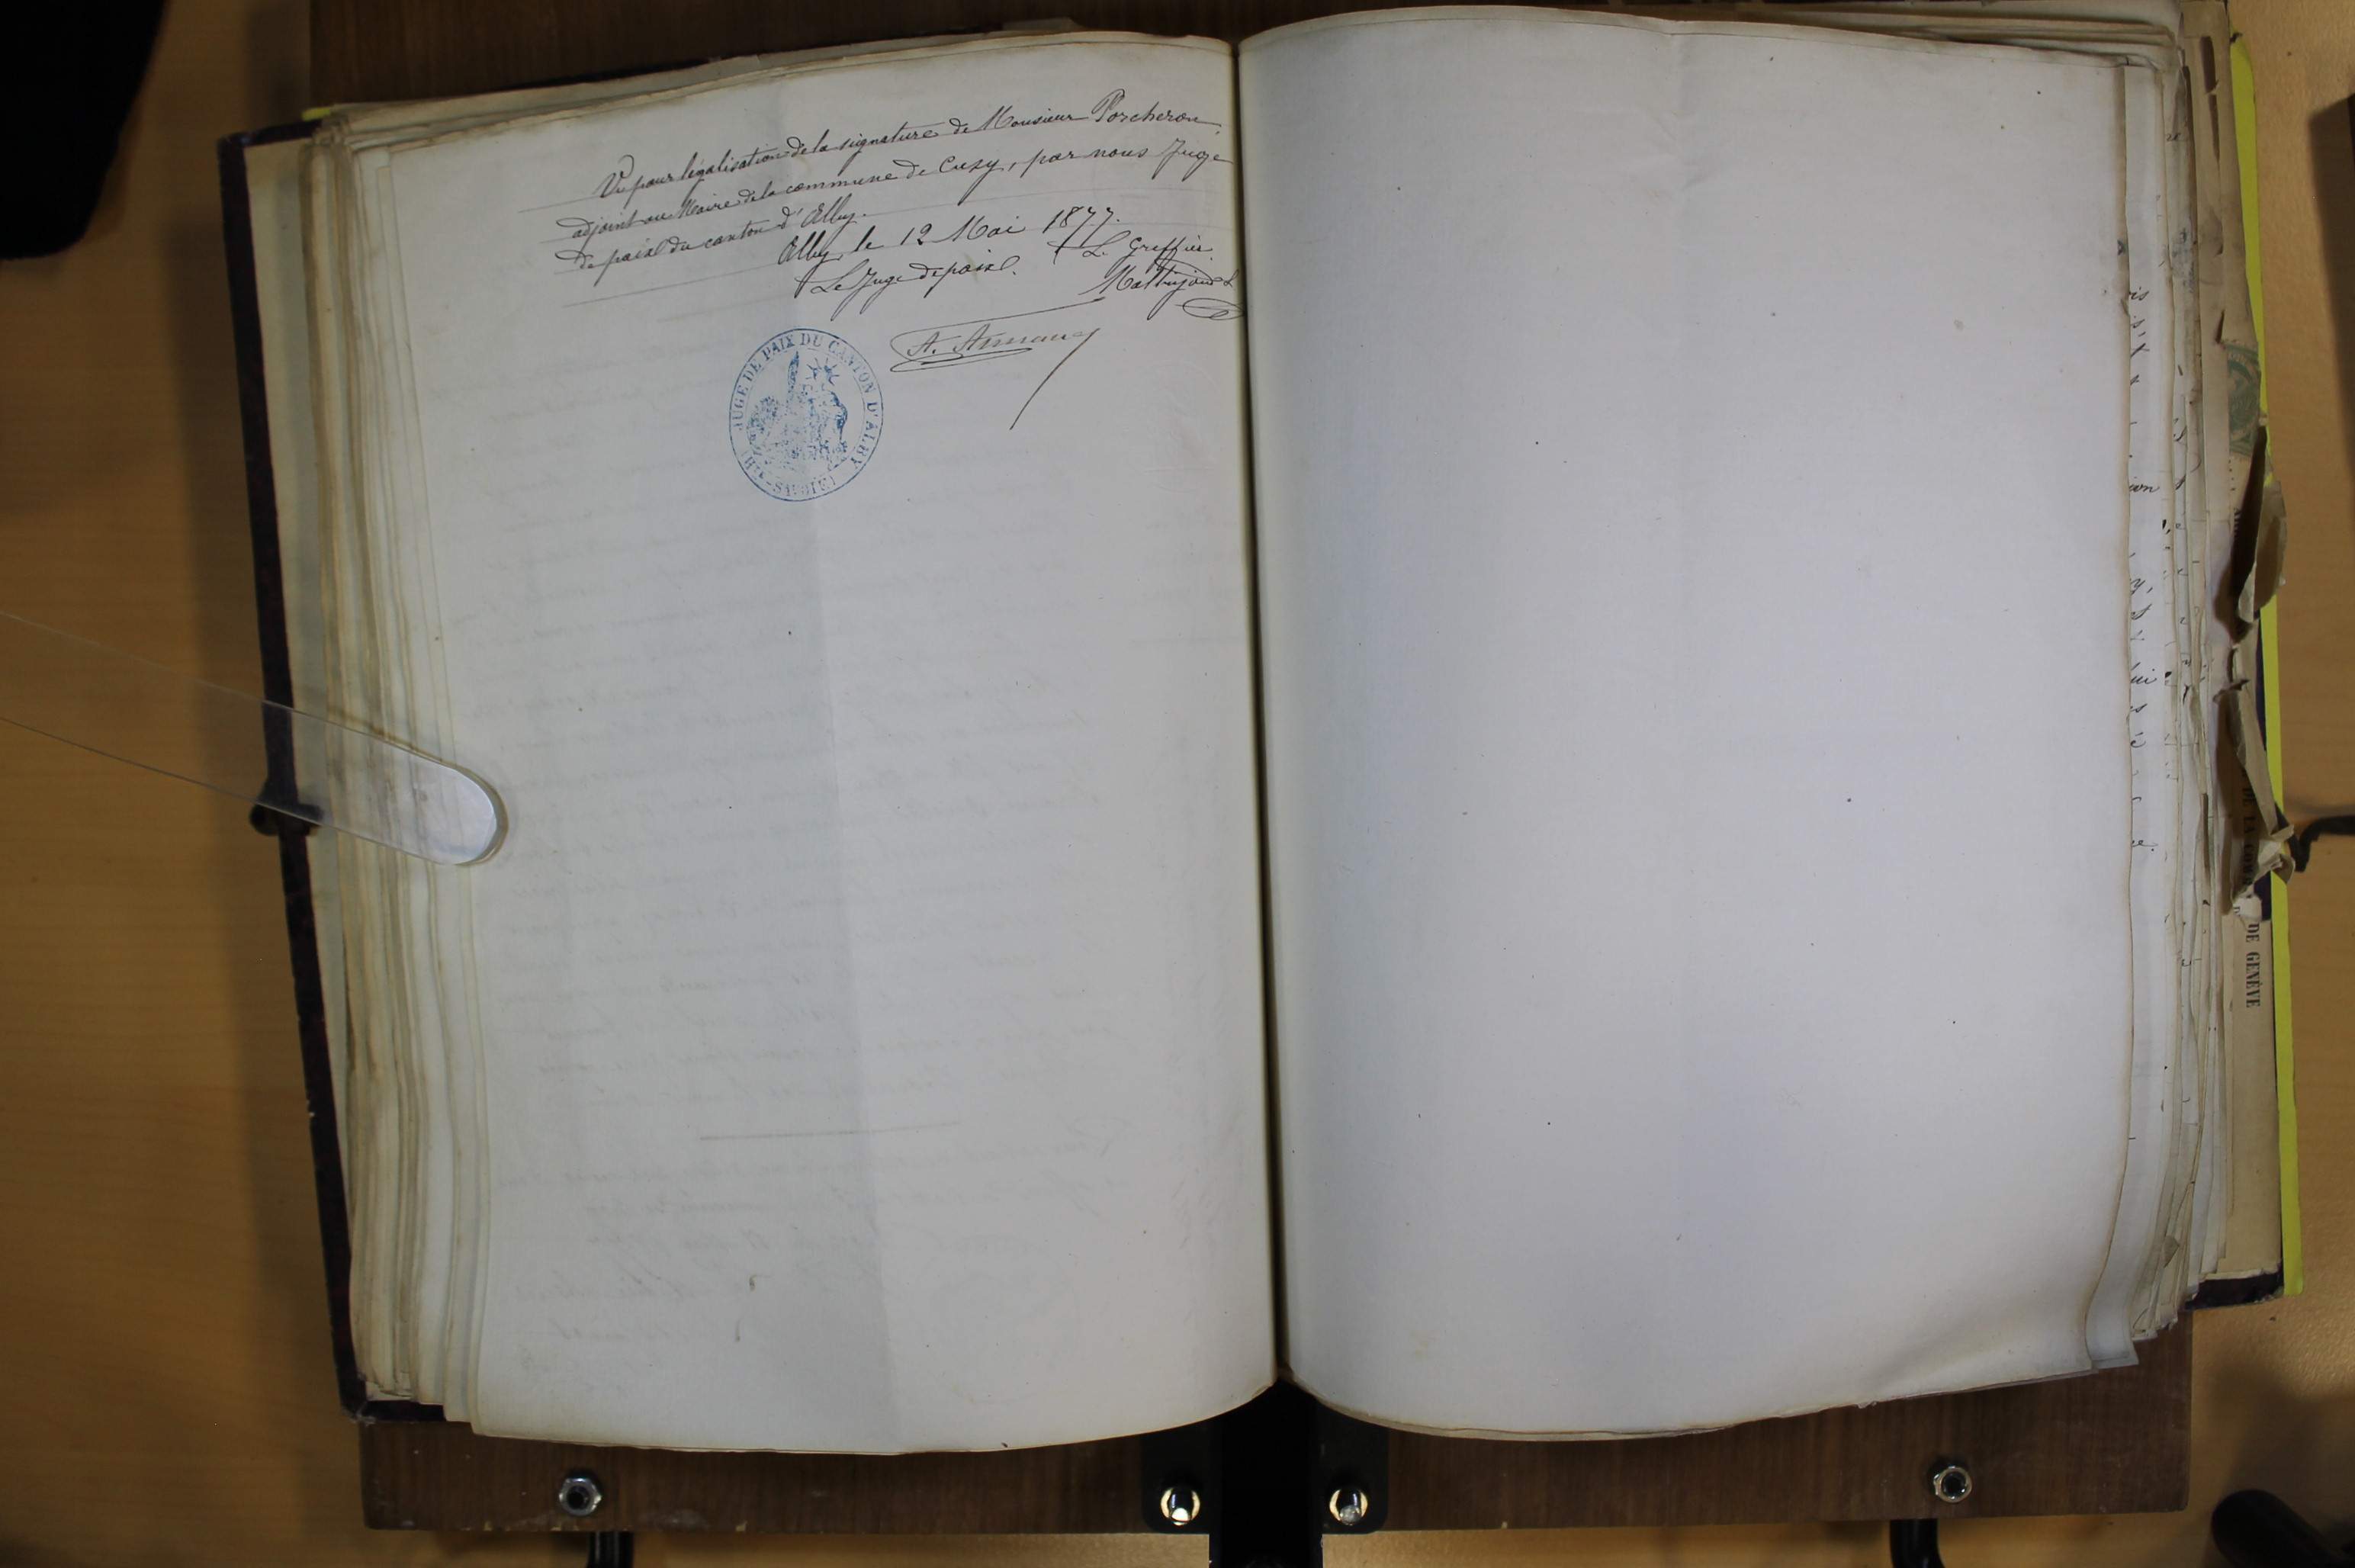 Vu pour légalisation de la signature de Monsieur Porcheron,
adjoint au Maire de la commune de Cusy, par nous Juge
de paix du canton d'Alby.
Alby, le 12 Mai 1877.
Le Juge de paix. Le Greffier.
A.
JUGE DE PAIX DU CANTON D'ALBY
(HTE-SAVOIE)
DE LA
DE GENÈVE